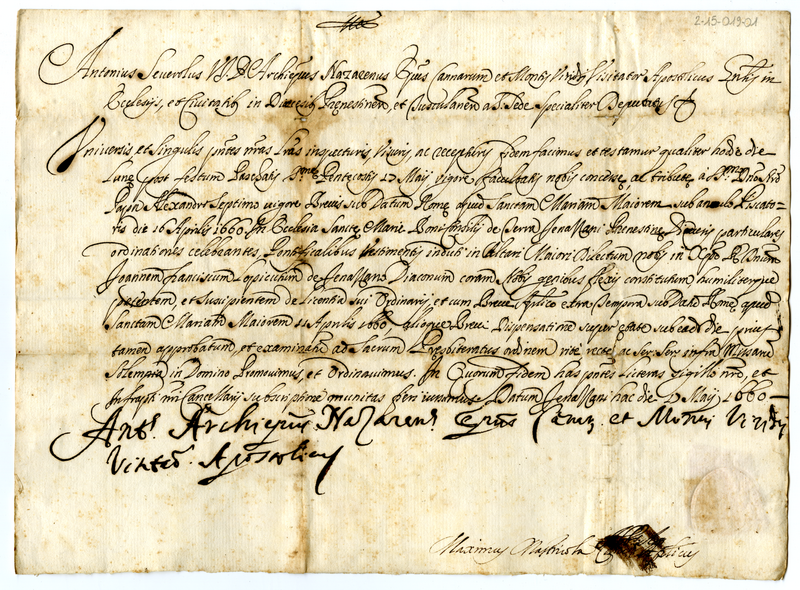 2-15-019-01
Antonius Severolus V.I.D. Archiepus Nazarenus Epus Cannarum et Montis Viridis Visitator Apostolicus in
Ecclesijs, et Civitatib in Diecesib Prenestinen, et Tusculanen a S. Sede specialiter Deputatus
Universis et singulis pntes nras lras inspecturis, visuris, ac recepturis fidem facimus et testamur qualiter hodie die
Lune post festum Paschatis Pentecostis 17 Maij vigore facultatis nobis concesse, ac tribute a Dno Nro
Papa Alexandro Septimo vigore Brevis sub Datum Rome apud Sanctam Mariam Maiorem sub anulo Piscato-
ris die 16 Aprilis 1660 In Ecclesia Sancte Marie de Serra Jenazzani Prenestine particulares
ordinationes celebrantes, Pontificalibus vestimentis induti in Altari Maiori Dilectum nobis in Xpto
Joannem franciscum de Jenazzano Diaconum coram Nobis genibus flexis constitutum humiliterque
petentem, et suscipientem de licentia sui Ordinarij, et cum Breve extra tempora sub Dat Rome apud
Sanctam Mariam Maiorem Aprilis 1660 Brevi Dispensatine super etate sub eade die
tamen approbatum, et examinatu ad Sacrum Presbiteratus ordinem rite recte ac infra Missaru
solempnia in Domino Promovimus, et Ordinavimus. In Quorum fidem has pntes literas sigillo nro, et
infrapti nri Cancellarij subscriptine munitas fieri Datum Jenazzani hac die 17 Maij 1660
Ant. Archiepus Nazaren. Epus Cann. et Montis Viridis
Visitator Apostolicus
Maximus Mastricola